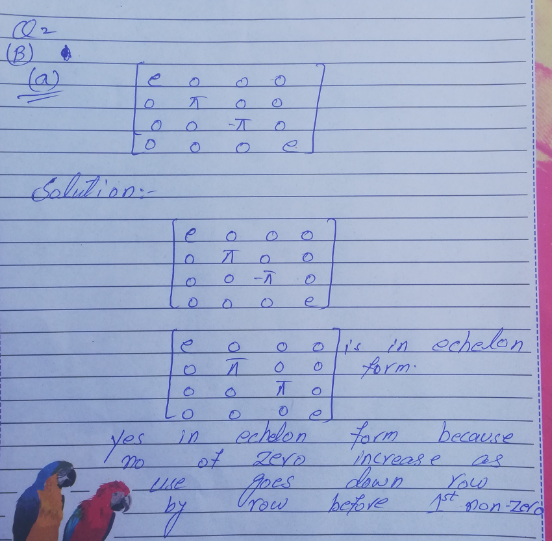 Q2
(B)
(a)
[e 0 0 0
0 π 0 0
0 0 -π 0
0 0 0 e]
Solution:-
[e 0 0 0
0 π 0 0
0 0 -π 0
0 0 0 e]
[e 0 0 0] is in echelon
0 π 0 0 form.
0 0 π 0
0 0 0 e]
yes in echelon form because
no of zero increase as
use goes down row
by row before 1st non-zero